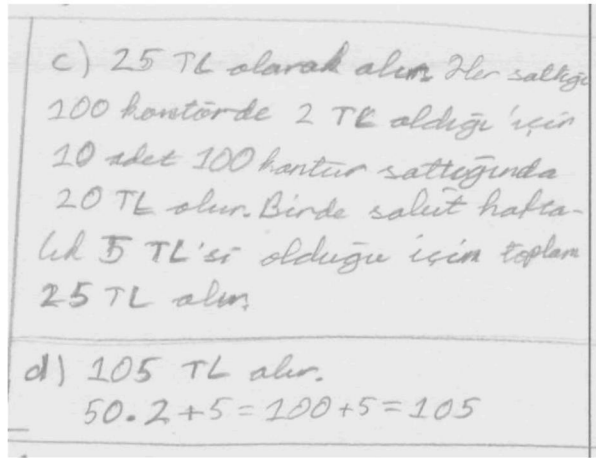 c) 25 TL olarak alır. Her sattığı
100 kontörde 2 TL aldığı için
10 adet 100 kontür sattığında
20 TL alır. Birde sabit hafta-
lık 5 TL'si olduğu için toplam
25 TL alır.
d) 105 TL alır.
50.2+5=100+5=105